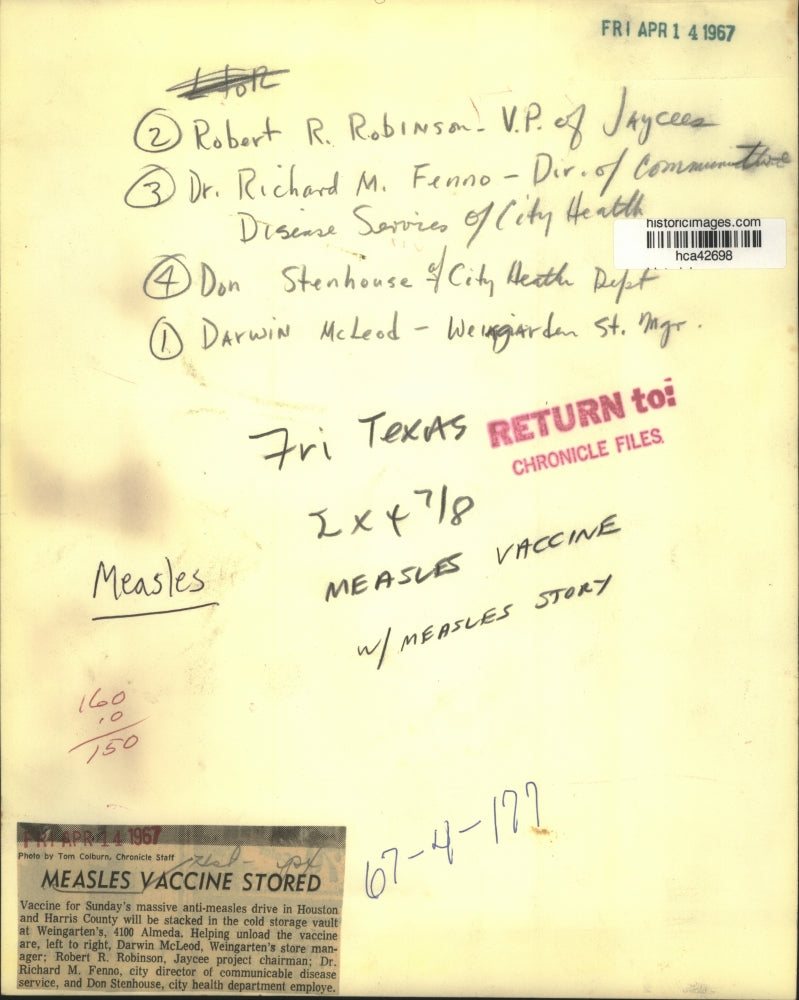 FRI APR 14 1967
L to R
② Robert R. Robinson - V.P. of Jaycees
③ Dr. Richard M. Fenno - Dir. of
Disease Services of City Health
historicimages.com
hca42698
④ Don Stenhouse of City Heath Dept
① Darwin McLeod - Weingarden St. Mgr.
Fri Texas
RETURN to:
CHRONICLE FILES.
2 x 4 7/8
MEASLES VACCINE
Measles
W/ MEASLES STORY
160
10
150
67-4-177
FRI APR 14 1967
Photo by Tom Colburn, Chronicle Staff
MEASLES VACCINE STORED
Vaccine for Sunday's massive anti-measles drive in Houston
and Harris County will be stacked in the cold storage vault
at Weingarten's, 4100 Almeda. Helping unload the vaccine
are, left to right, Darwin McLeod, Weingarten's store man-
ager; Robert R. Robinson, Jaycee project chairman; Dr.
Richard M. Fenno, city director of communicable disease
service, and Don Stenhouse, city health department employe.